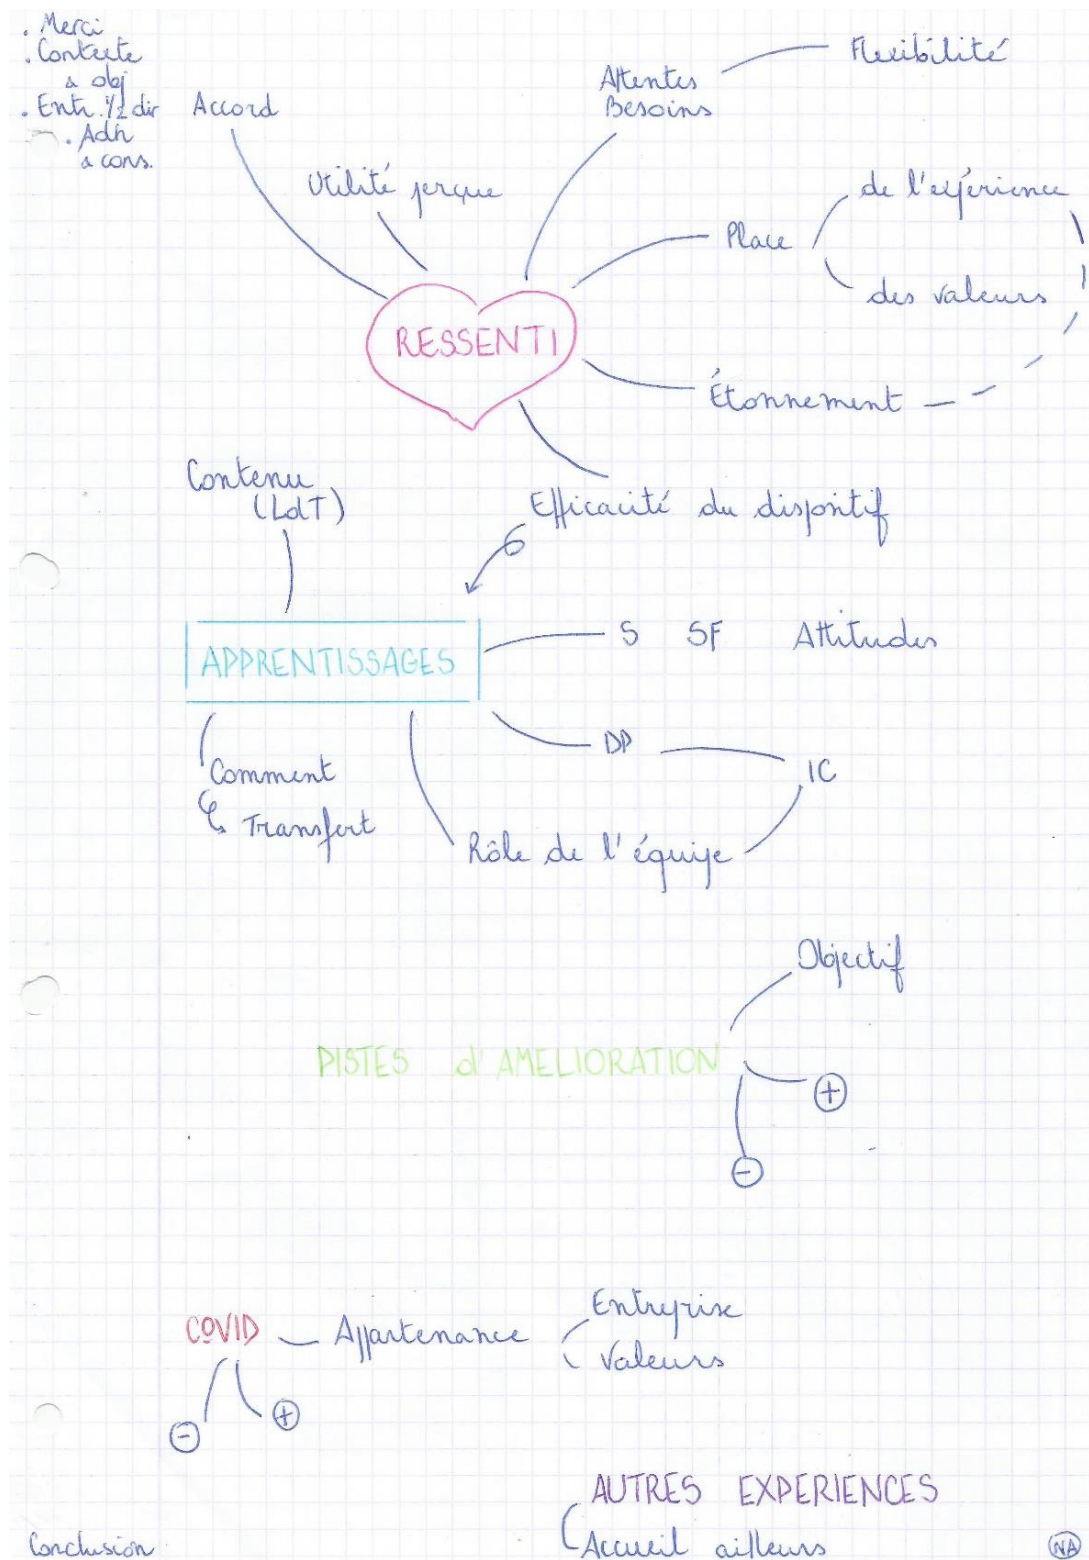 . Merci
. Contexte
& obj
. Entr. 1/2 dir
. Adh
& cons.
Accord
Utilité perçue
Attentes
Besoins
Flexibilité
Place
de l'expérience
des valeurs
RESSENTI
Étonnement
Efficacité du dispositif
Contenu
(LdT)
APPRENTISSAGES
S SF Attitudes
DP
IC
Comment
Transfert
Rôle de l'équipe
Objectif
PISTES d'AMELIORATION
+
-
COVID
Appartenance
Entreprise
Valeurs
-
+
AUTRES EXPERIENCES
Accueil ailleurs
Conclusion
NA